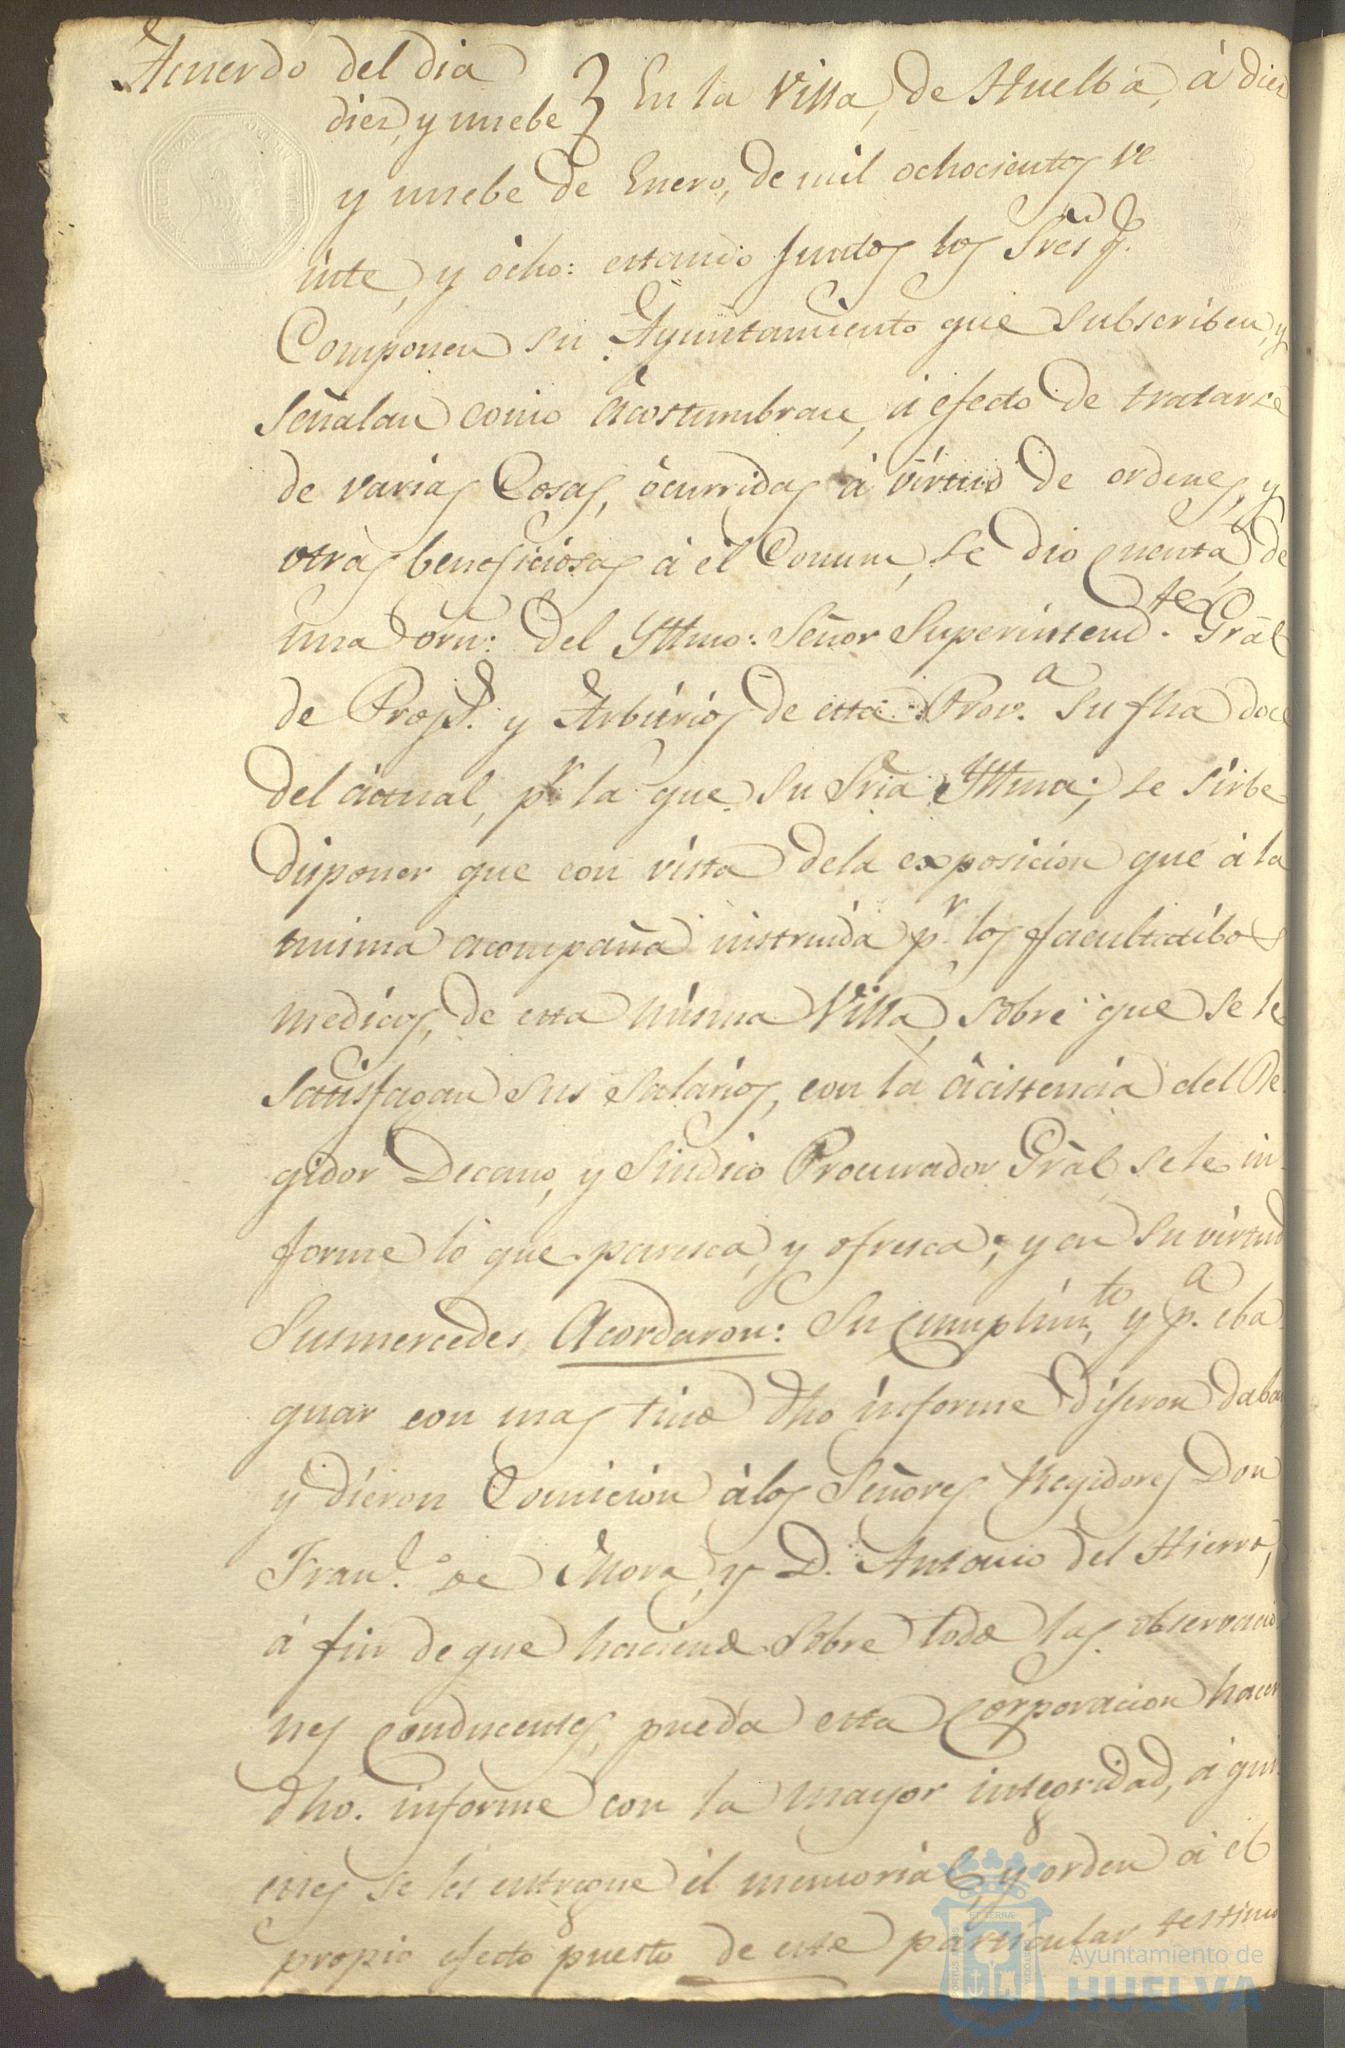 Acuerdo del dia
diez, y nuebe } En la Villa, de Huelba, á diez
y nuebe de Enero, de mil ochocientos ve
inte, y ócho: estando Juntos los Sres q.
Componen su Ayuntamiento que subscriben, y
Señalan como ácostumbran, á efecto de tratarse
de varias Cosas, ócurridas á virtud de ordenes, y
otras beneficiosas á el Comun, se dio cuenta, de
una orn: del Yttmo: Señor Superintend.te Gral
de Prop.s y Arbitrios de esta Prov.a su fha doce
del áctual, p.r la que su Sria Yttma; se sirbe
disponer que con vista dela exposicion que á la
misma acompaña instruida p.r los facultatibos
medicos, de esta misma Villa, sobre que se le
satisfagan sus salarios, con la ácistencia del Re
gidor Decano, y Sindico Procurador Gral se le in
forme lo que paresca, y ofresca; y en su virtud
Susmercedes Acordaron: Su cumplim.to y p.a eba
guar con mas tino dho informe dijeron daban
y dieron Comicion álos Señores Regidores Don
Fran.co de Mora, y D. Antonio del Hierro,
á fin de que haciendo sobre todo las observacio
nes conducentes, pueda esta Corporacion hacer
dho. informe con la mayor integridad, á qui
enes se les entregue él memorial, y orden á el
propio efecto puesto de este particular testimo
Ayuntamiento de
HUELVA